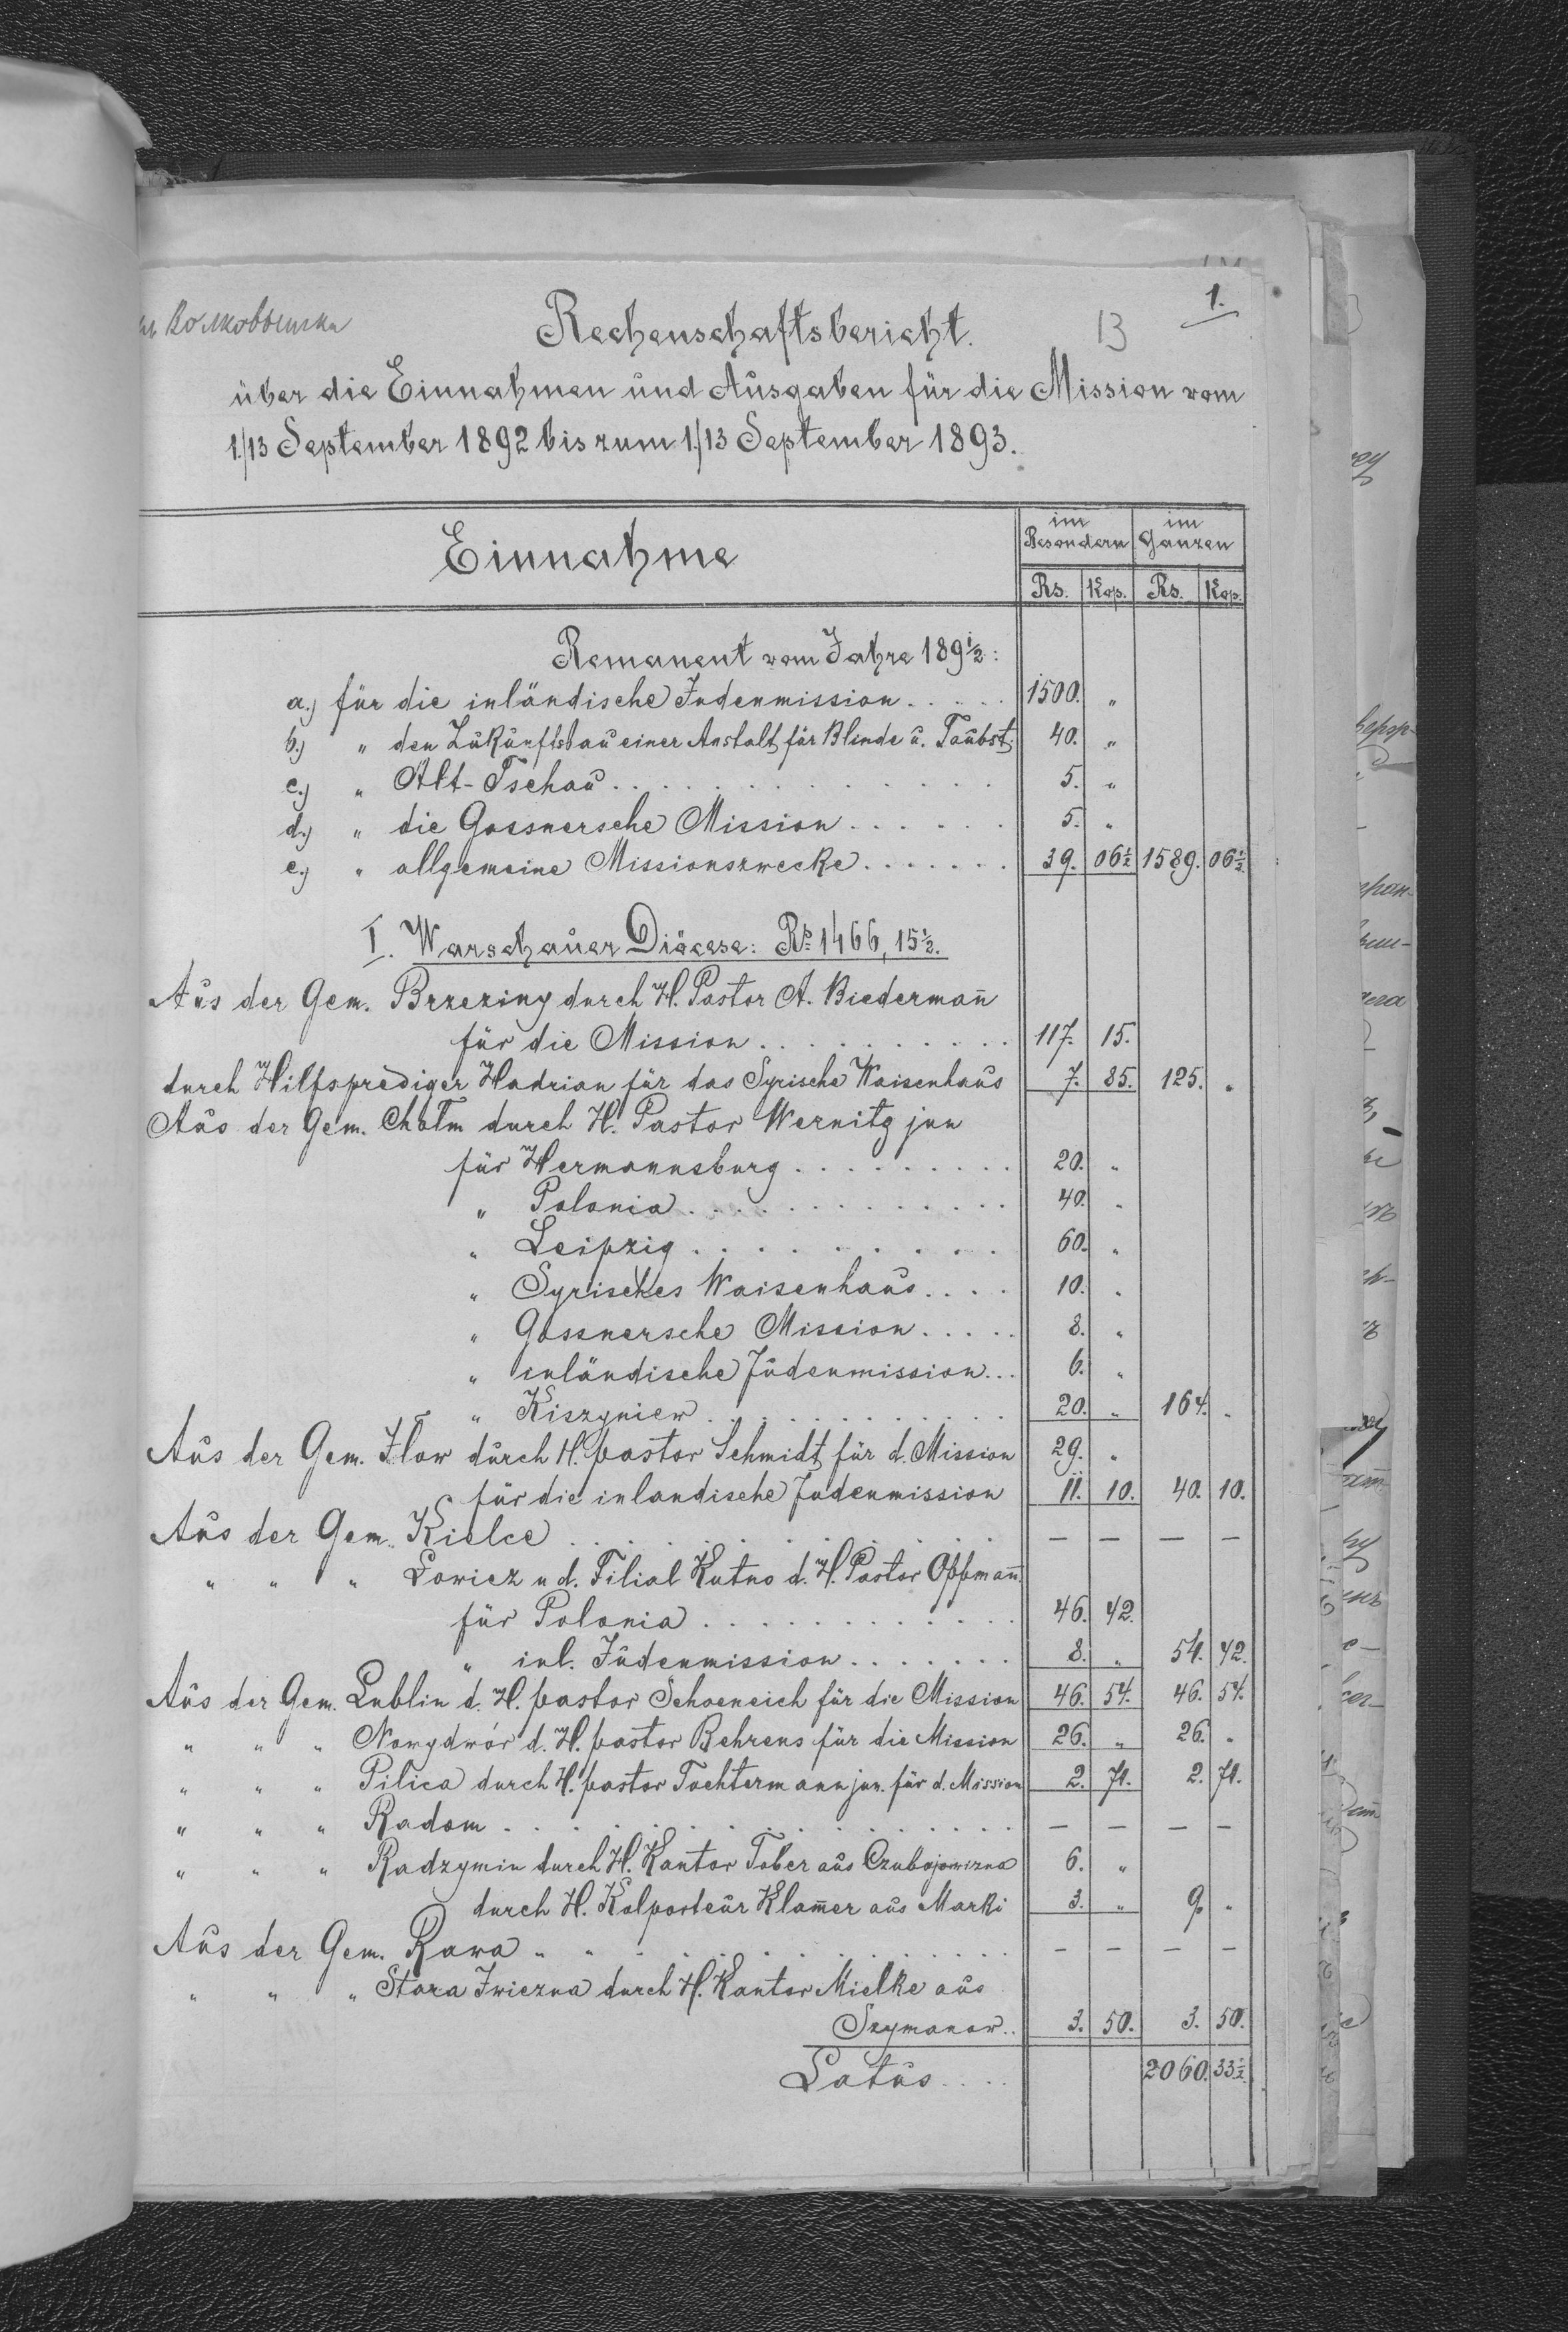 1.
13
Rechenschaftsbericht.
über die Einnahmen und Ausgaben für die Mission vom
1./13 September 1892 bis zum 1./13 September 1893.
Einnahme im Besondern im Ganzen
Rs. Kop. Rs. Kop.
Remanent vom Jahre 189½:
a.) für die inländische Judenmission..... 1500. "
b.) " den Zukunftsbau einer Anstalt für Blinde u. Taubst. 40. "
c.) " Alt-Tschau............ 5. "
d.) " die Gossnersche Mission...... 5. "
e.) " allgemeine Missionszwecke....... 39. 06½ 1589. 06½
I. Warschauer Diöcese: Rs 1466,15½.
Aus der Gem. Brzeziny durch H. Pastor A. Biedermañ
für die Mission.......... 117. 15.
durch Hilfsprediger Hadrian für das Syrische Waisenhaus 7. 85. 125. "
Aus der Gem. Chołm durch H. Pastor Wernitz jun
für Hermannsburg......... 20. "
" Polonia............ 40. "
" Leipzig.......... 60. "
" Syrisches Waisenhaus.... 10. "
" Gossnersche Mission..... 8. "
" inländische Judenmission... 6. "
" Kiszyniew........... 20. " 164. "
Aus der Gem. Iłow durch H. pastor Schmidt für d. Mission 29. "
für die inlandische Judenmission 11. 10. 40. 10.
Aus der Gem. Kielce............ — — — —
" " " Łowicz u d. Filial Kutno d. H. Pastor Oppmañ
für Polonia............ 46. 42.
" inl. Judenmission....... 8. " 54. 42.
Aus der Gem. Lublin d. H. pastor Schoeneich für die Mission 46. 54. 46. 54.
" " " Nowydwór d. H. pastor Behrens für die Mission 26. " 26. "
" " " Pilica durch H. pastor Tochtermann jun. für d. Mission 2. 71. 2. 71.
" " " Radom................ — — — —
" " " Radzymin durch H. Kantor Tober aus Czubajowizna 6. "
durch H. Kolporteur Klam̄er aus Marki 3. " 9. "
Aus der Gem. Rawa " "............ — — — —
" " " Stara Iwiczna durch H. Kantor Mielke aus
Szymanow.. 3. 50. 3. 50.
Latus.... 2060. 33½